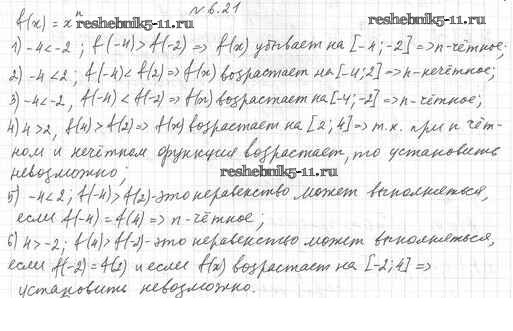 № 6.21
f(x) = xⁿ reshebnik5-11.ru reshebnik5-11.ru
1) -4<-2 ; f(-4)>f(-2) => f(x) убывает на [-4;-2] => n-чётное;
2) -4<2; f(-4)<f(2) => f(x) возрастает на [-4;2] => n-нечётное;
3) -4<-2, f(-4)<f(-2) => f(x) возрастает на [-4;-2] => n-чётное;
4) 4>2, f(4)>f(2) => f(x) возрастает на [2;4] => т.к. при n чёт-
ном и нечётном функция возрастает, то установить
невозможно; reshebnik5-11.ru
5) -4<2; f(-4)>f(2) - это неравенство может выполняться,
если f(-4) = f(4) => n-чётное;
6) 4>-2; f(4)>f(-2) - это неравенство может выполняться,
если f(-2) = f(2) и если f(x) возрастает на [-2;4] =>
установить невозможно.